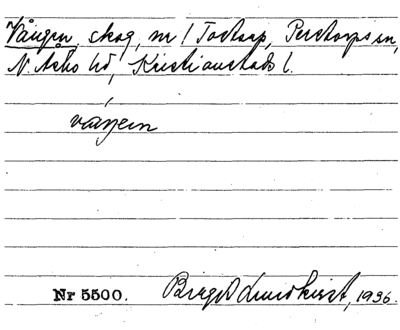 Vången, skog, nr 1 Tostarp, Perstorps sn,
N. Åsbo hd, Kristianstads l.
vaŋen
Nr 5500. Birgit Lundkvist, 1936.